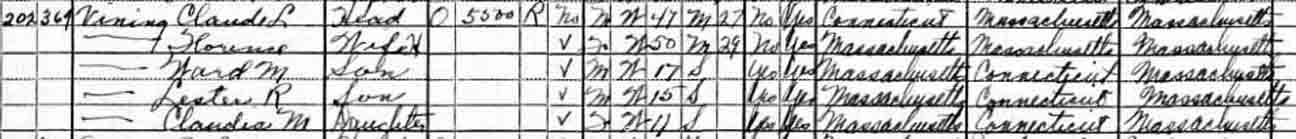 202 369 Vining Claude L Head O 5500 R No M W 47 M 27 No Yes Connecticut Massachusetts Massachusetts
— Florence Wife H V F W 50 M 29 No Yes Massachusetts Massachusetts Massachusetts
— Ward M Son V M W 17 S Yes Yes Massachusetts Connecticut Massachusetts
— Lester R Son V M W 15 S Yes Yes Massachusetts Connecticut Massachusetts
— Claudia M Daughter V F W 11 S Yes Yes Massachusetts Connecticut Massachusetts